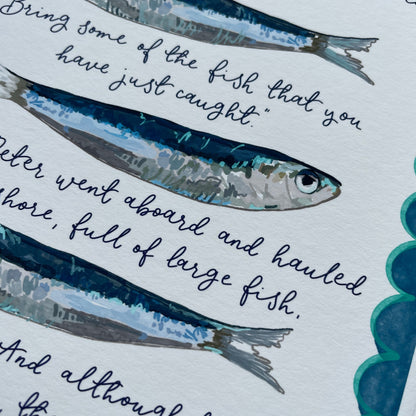 Bring some of the fish that you
have just caught."
Peter went aboard and hauled
shore, full of large fish.
And although